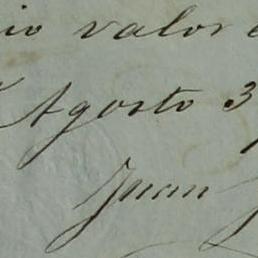 io valor
Agosto 3
Juan